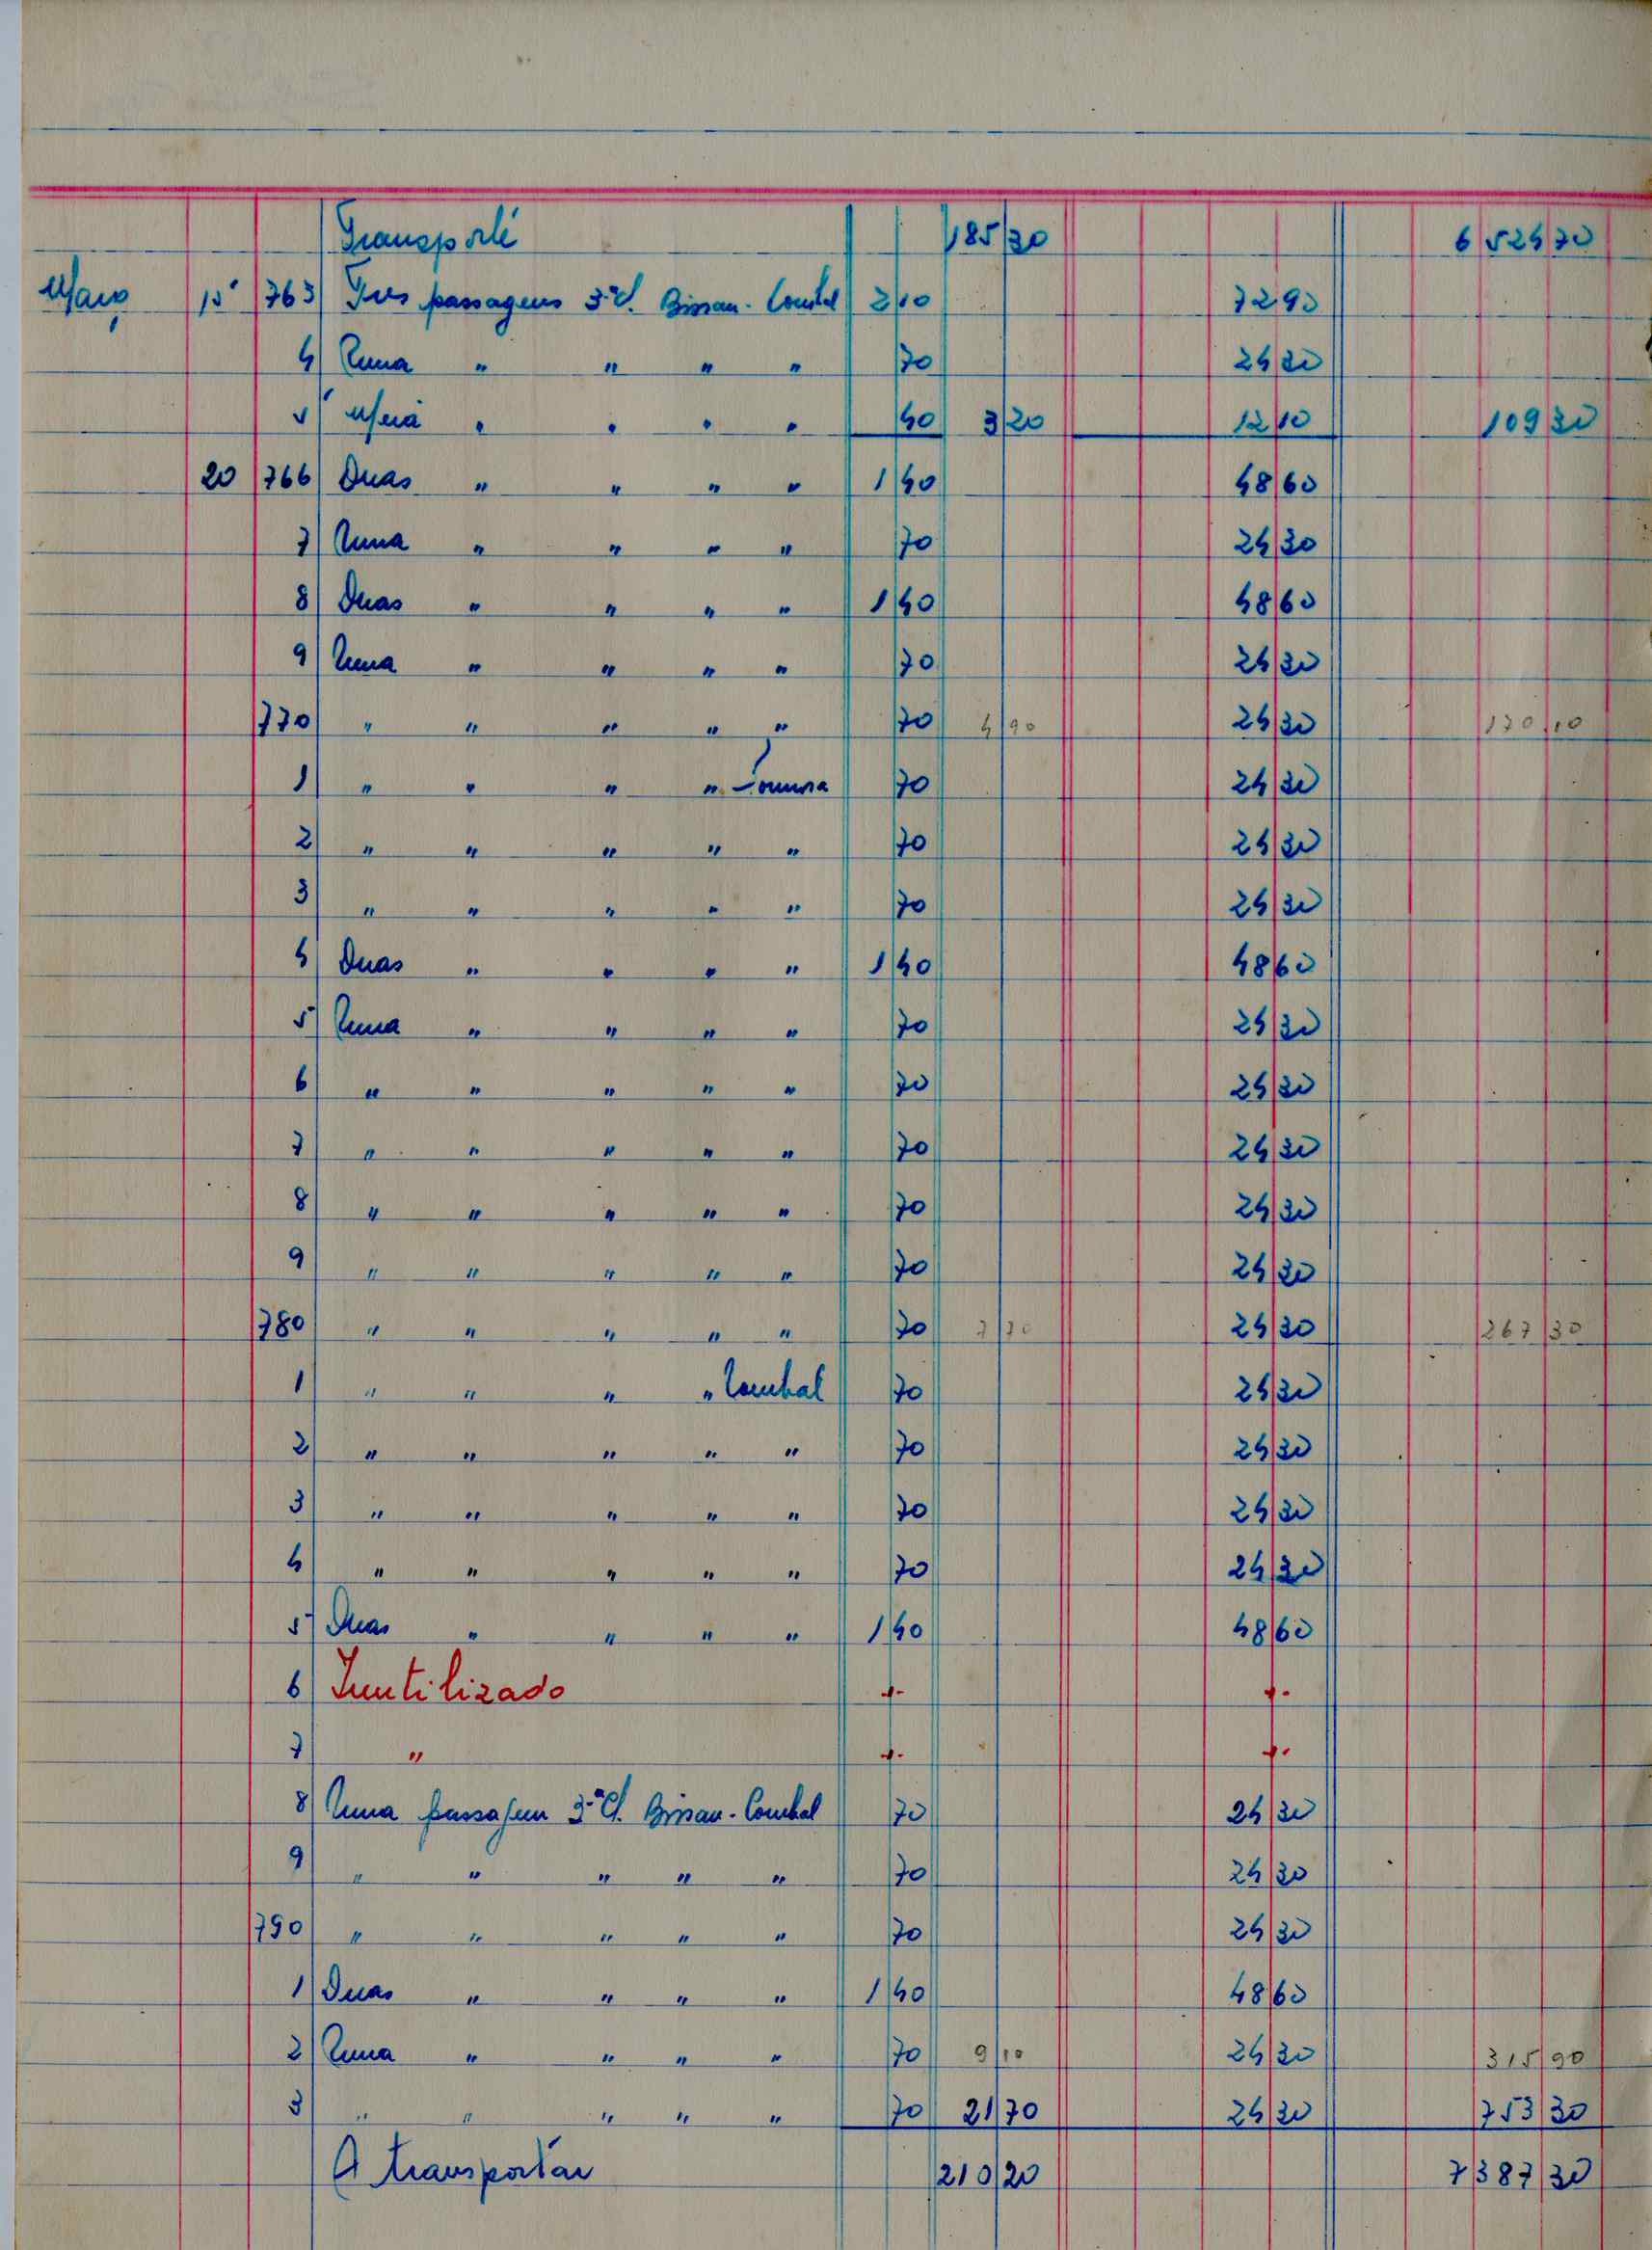 Transporte 185 30 6 524 70
Março 15 763 Tres passagens 3ª cl. Bissau - 2 10 72 90
4 Uma " " " " 70 24 30
5 Meia " " " " 40 3 20 12 10 109 30
20 766 Duas " " " " 1 40 48 60
7 Uma " " " " 70 24 30
8 Duas " " " " 1 40 48 60
9 Uma " " " " 70 24 30
770 " " " " " 70 4 90 24 30 170 10
1 " " " " 70 24 30
2 " " " " " 70 24 30
3 " " " " " 70 24 30
4 Duas " " " " 1 40 48 60
5 Uma " " " " 70 24 30
6 " " " " " 70 24 30
7 " " " " " 70 24 30
8 " " " " " 70 24 30
9 " " " " " 70 24 30
780 " " " " " 70 7 70 24 30 267 30
1 " " " " 70 24 30
2 " " " " " 70 24 30
3 " " " " " 70 24 30
4 " " " " " 70 24 30
5 Duas " " " " 1 40 48 60
6 Inutilizado
7 "
8 Uma passagem 3ª Cl. Bissau - 70 24 30
9 " " " " " 70 24 30
790 " " " " " 70 24 30
1 Duas " " " " 1 40 48 60
2 Uma " " " " 70 9 10 24 30 315 90
3 " " " " " 70 21 70 24 30 753 30
A transportar 210 20 7 387 30